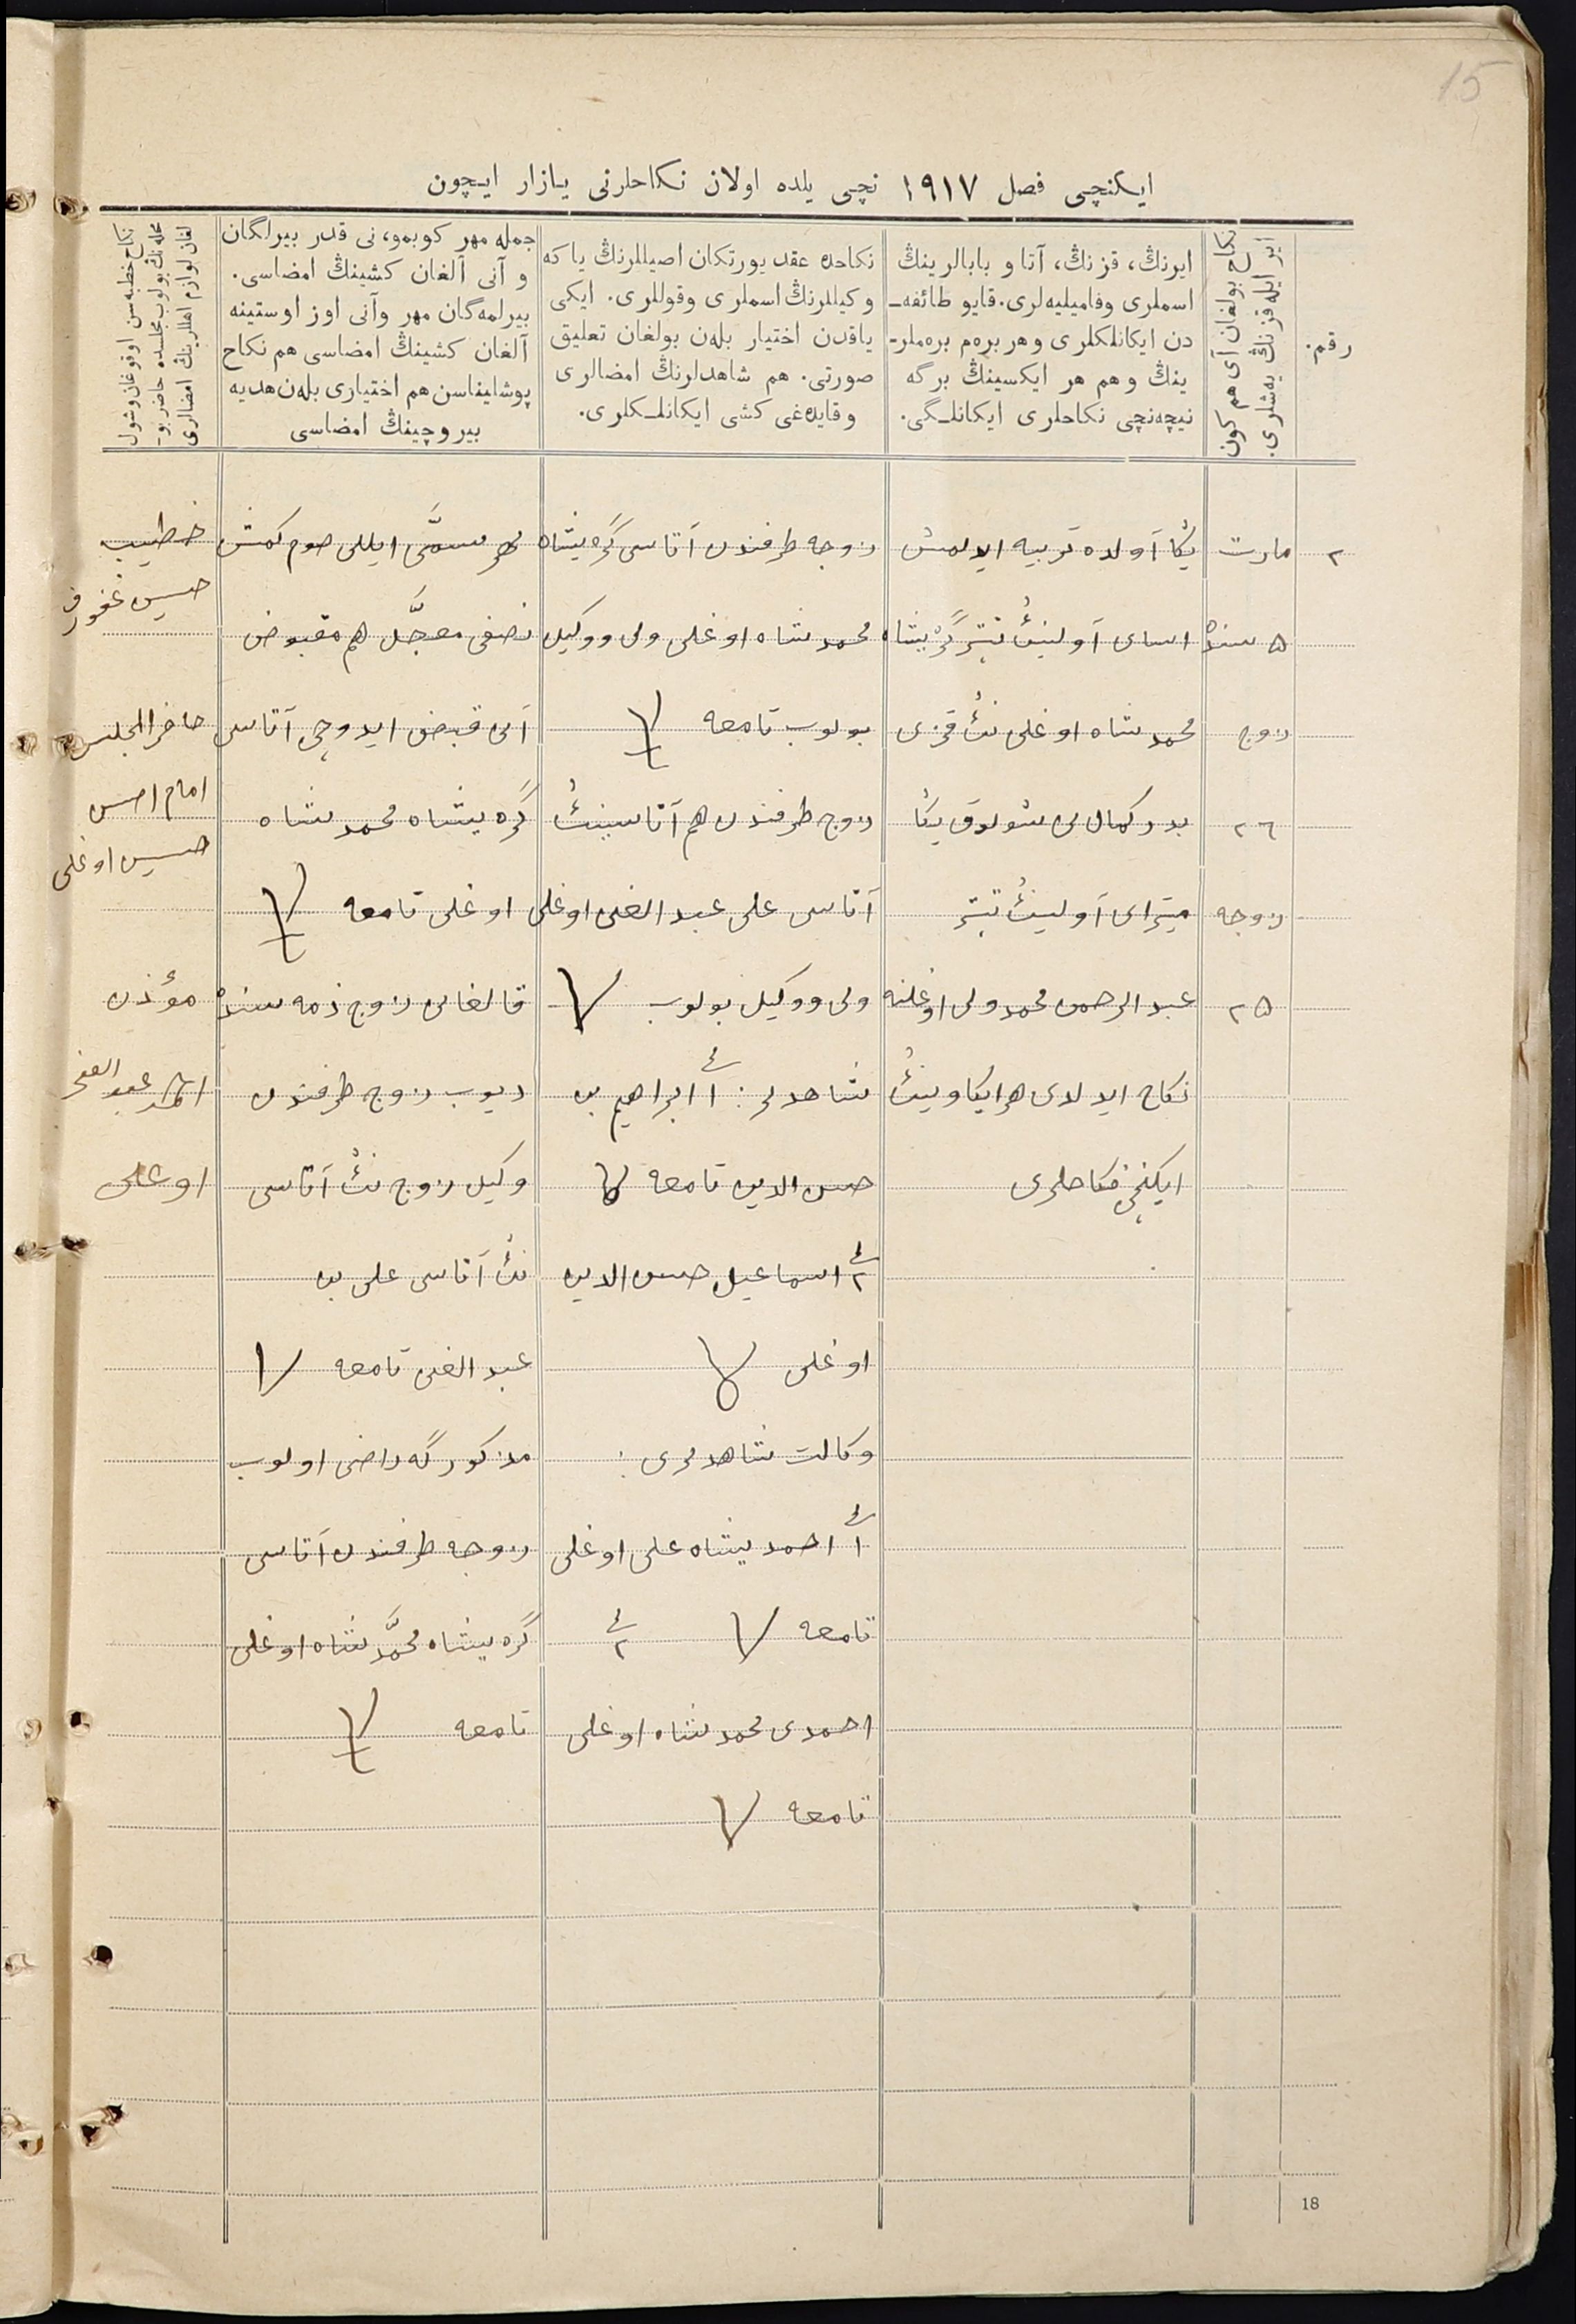 15
ایکنچی فصل ١٩١٧ نچی یلده اولان نکاحلرنی یازار ایچون
رقم.
نکاح بولغان آی هم کون
ایر ایله قزنڭ یەشلری.
ایرنڭ، قزنڭ، آتا و بابالرینڭ
اسملری وفامیلیەلری. قایو طائفه‌ـ
دن ایکانلکلری و هر برەم برەملرـ
ینڭ و هم هر ایکسینڭ برگه
نیچەنچی نکاحلری ایکانلـگی.
نکاحده عقد یورتکان اصیللرنڭ یا که
وکیللرنڭ اسملری وقوللری. ایکی
یاقدن اختیار بلەن بولغان تعلیق
صورتی. هم شاهدلرنڭ امضالری
وقایدەغی کشی ایکانلـکلری.
جمله مهر کوبمو، نی قدر بیرلگان
و آنی آلغان کشینڭ امضاسی.
بیرلمەگان مهر وآنی اوز اوستینه
آلغان کشینڭ امضاسی هم نکاح
پوشایناسن هم اختیاری بلەن هدیه
بیروچینڭ امضاسی
نکاح خطبەسن اوقوغان وشول
محله‌نڭ بولوب مجلسده حاضر بوـ
لغان لوازم اهللرینڭ امضالری
٢
مارت
۵ سنده
زوج
٢٦
زوجه
٢۵
یڭا آولده تربیه ایدلمش
اسای آولینڭ تبتر گرەیشاه
محمدشاه اوغلی نڭ قزی
بدرکمال نی شولوق یڭا
میترای آولینڭ تبتر
عبدالرحمن محمدولی اوغلنه
نکاح ایدلدی هر ایکاوینڭ
ایکنچی نکاحلری
زوجه طرفندن آتاسی گرەیشاه
محمدشاه اوغلی ولی ووکیل
بولوب تامعه
زوج طرفندن هم آتاسینڭ
آتاسی علی عبدالغنی اوغلی
ولی ووکیل بولوب
شاهدلر: ١ ابراهیم بن
حسن الدین تامعه
٢ اسماعیل حسن الدین
اوغلی
وکالت شاهدلری:
١ احمدیشاه علی اوغلی
تامعه ٢
احمدی محمدشاه اوغلی
تامعه
مهر مسمَّی ایللی صوم کمش
نصفی معجَّل هم مقبوض
آنی قبض ایدوچی آتاسی
گرەیشاه محمدشاه
اوغلی تامعه
قالغانی زوج ذمه سنده
دیوب زوج طرفندن
وکیل زوج نڭ آتاسی
نڭ آتاسی علی بن
عبدالغنی تامعه
مذکورگه راضی اولوب
زوجه طرفندن آتاسی
گرەیشاه محمَّدشاه اوغلی
تامعه
خطیب
حسین غفوروف
حاضر المجلس
امام احسن
حسین اوغلی
مؤذن
احمد عبدالغنی
اوغلی
18